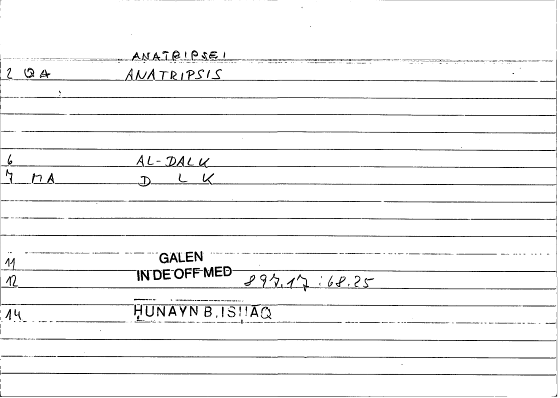 ANATRIPSEI
2 QA ANATRIPSIS
6 AL-DALK
7 MA D L K
11 GALEN
12 IN DE OFF MED 897,17 : 68.25
14 ḤUNAYN B. ISḤĀQ